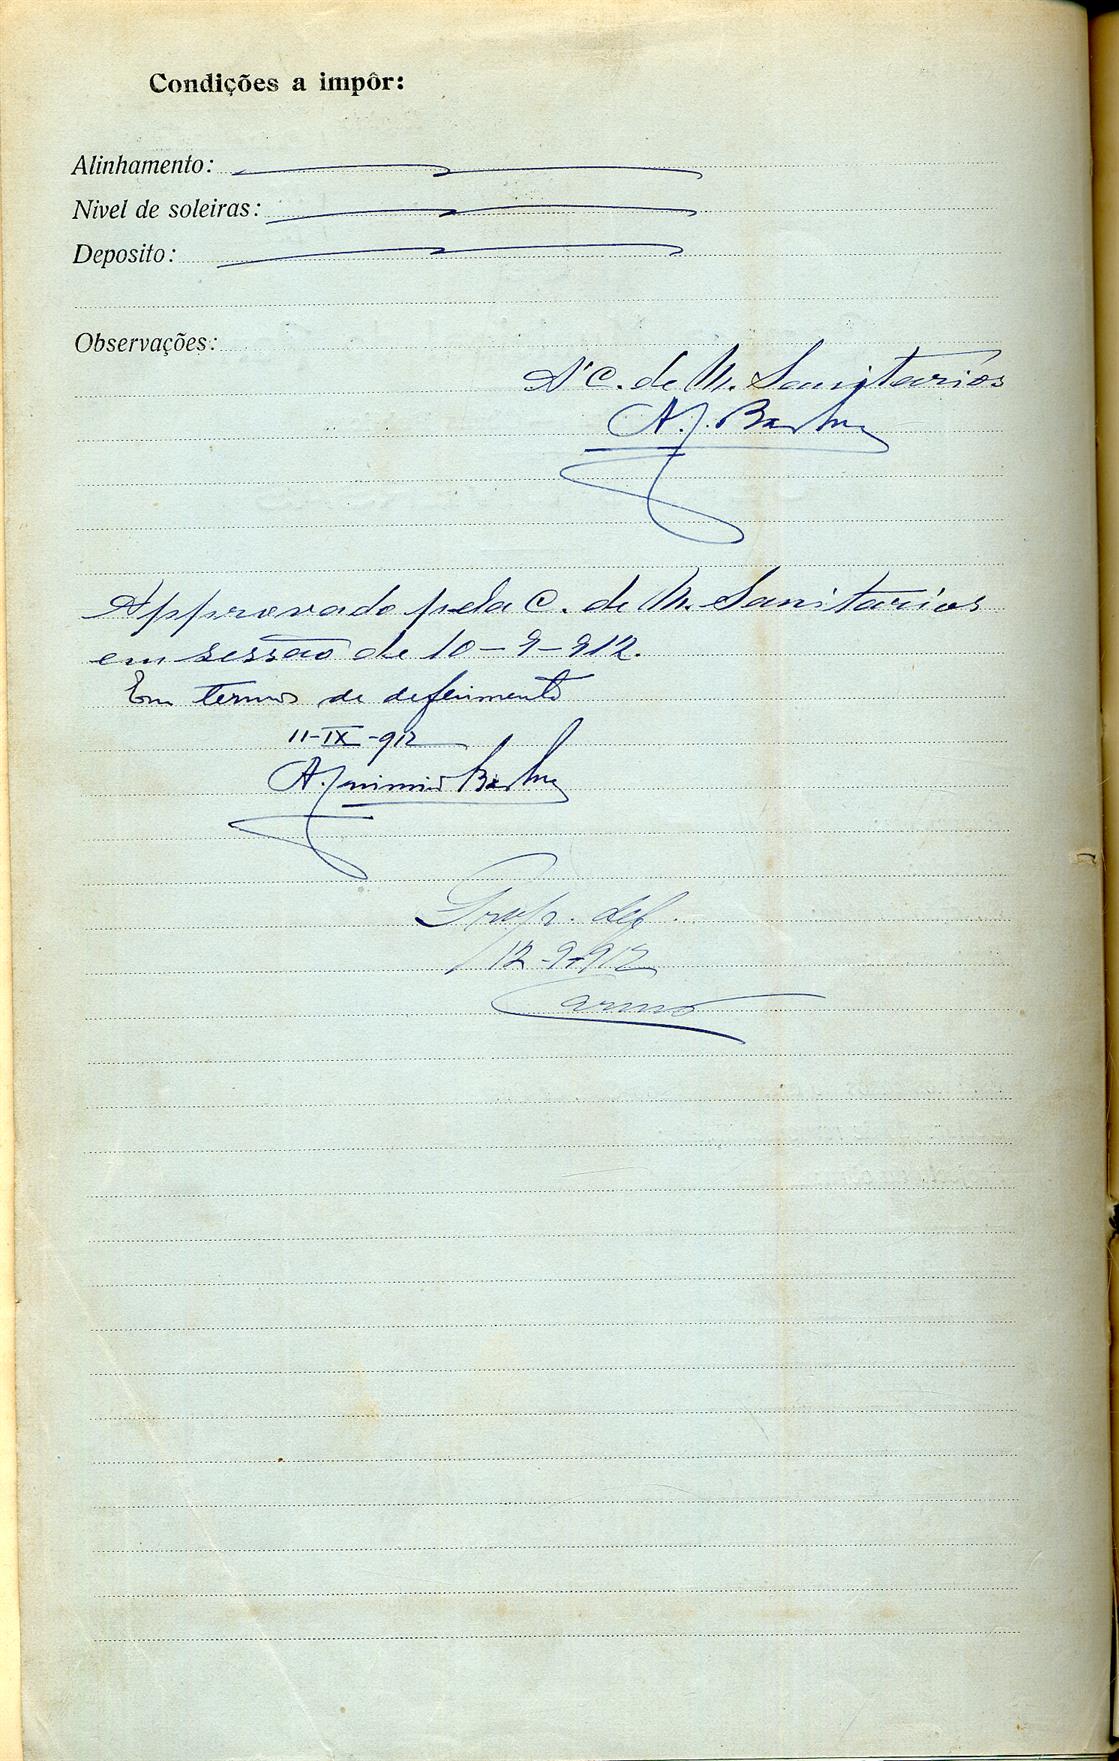 Condições a impôr:
Alinhamento:
Nivel de soleiras:
Deposito:
Observações:
A' C. de M. Sanitarios
A. J. Barbosa
Approvado pela C. de M. Sanitarios
em sessão de 10-9-912.
Em termos de deferimento
11-IX-912
A. Barbosa
def.
12-9-912